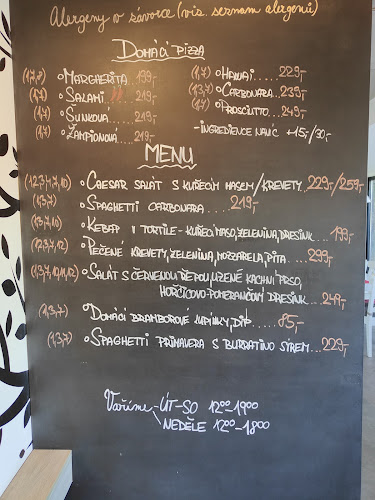 Alergeny v závorce (viz. seznam alergenů)
Domácí pizza
(1,7) • Margherita 199,-
(1,7) • Salami 219,-
(1,7) • Šunková 219,-
(1,7) • Žampionová 219,-
(1,7) • Hawai 229,-
(1,3,7) • Carbonara 239,-
(1,7) • Prosciutto 249,-
- ingredience navíc +15,-/30,-
MENU
(1,2,3,4,7,10) • Caesar salát s kuřecím masem/krevety 229,-/259,-
(1,3,7) • Spaghetti carbonara 219,-
(1,3,7,10) • Kebap v tortile - kuřecí maso, zelenina, dresink 199,-
(1,2,3,7,12) • Pečené krevety, zelenina, mozzarela, pita 299,-
(1,3,7,10,11,12) • Salát s červenou řepou, uzené kachní prso,
hořčicovo-pomerančový dresink 249,-
(1,3,7) • Domácí bramborové lupínky, dip 85,-
(1,3,7) • Spaghetti primavera s burratino sýrem 229,-
Vaříme - ÚT-SO 12⁰⁰-19⁰⁰
NEDĚLE 12⁰⁰-18⁰⁰